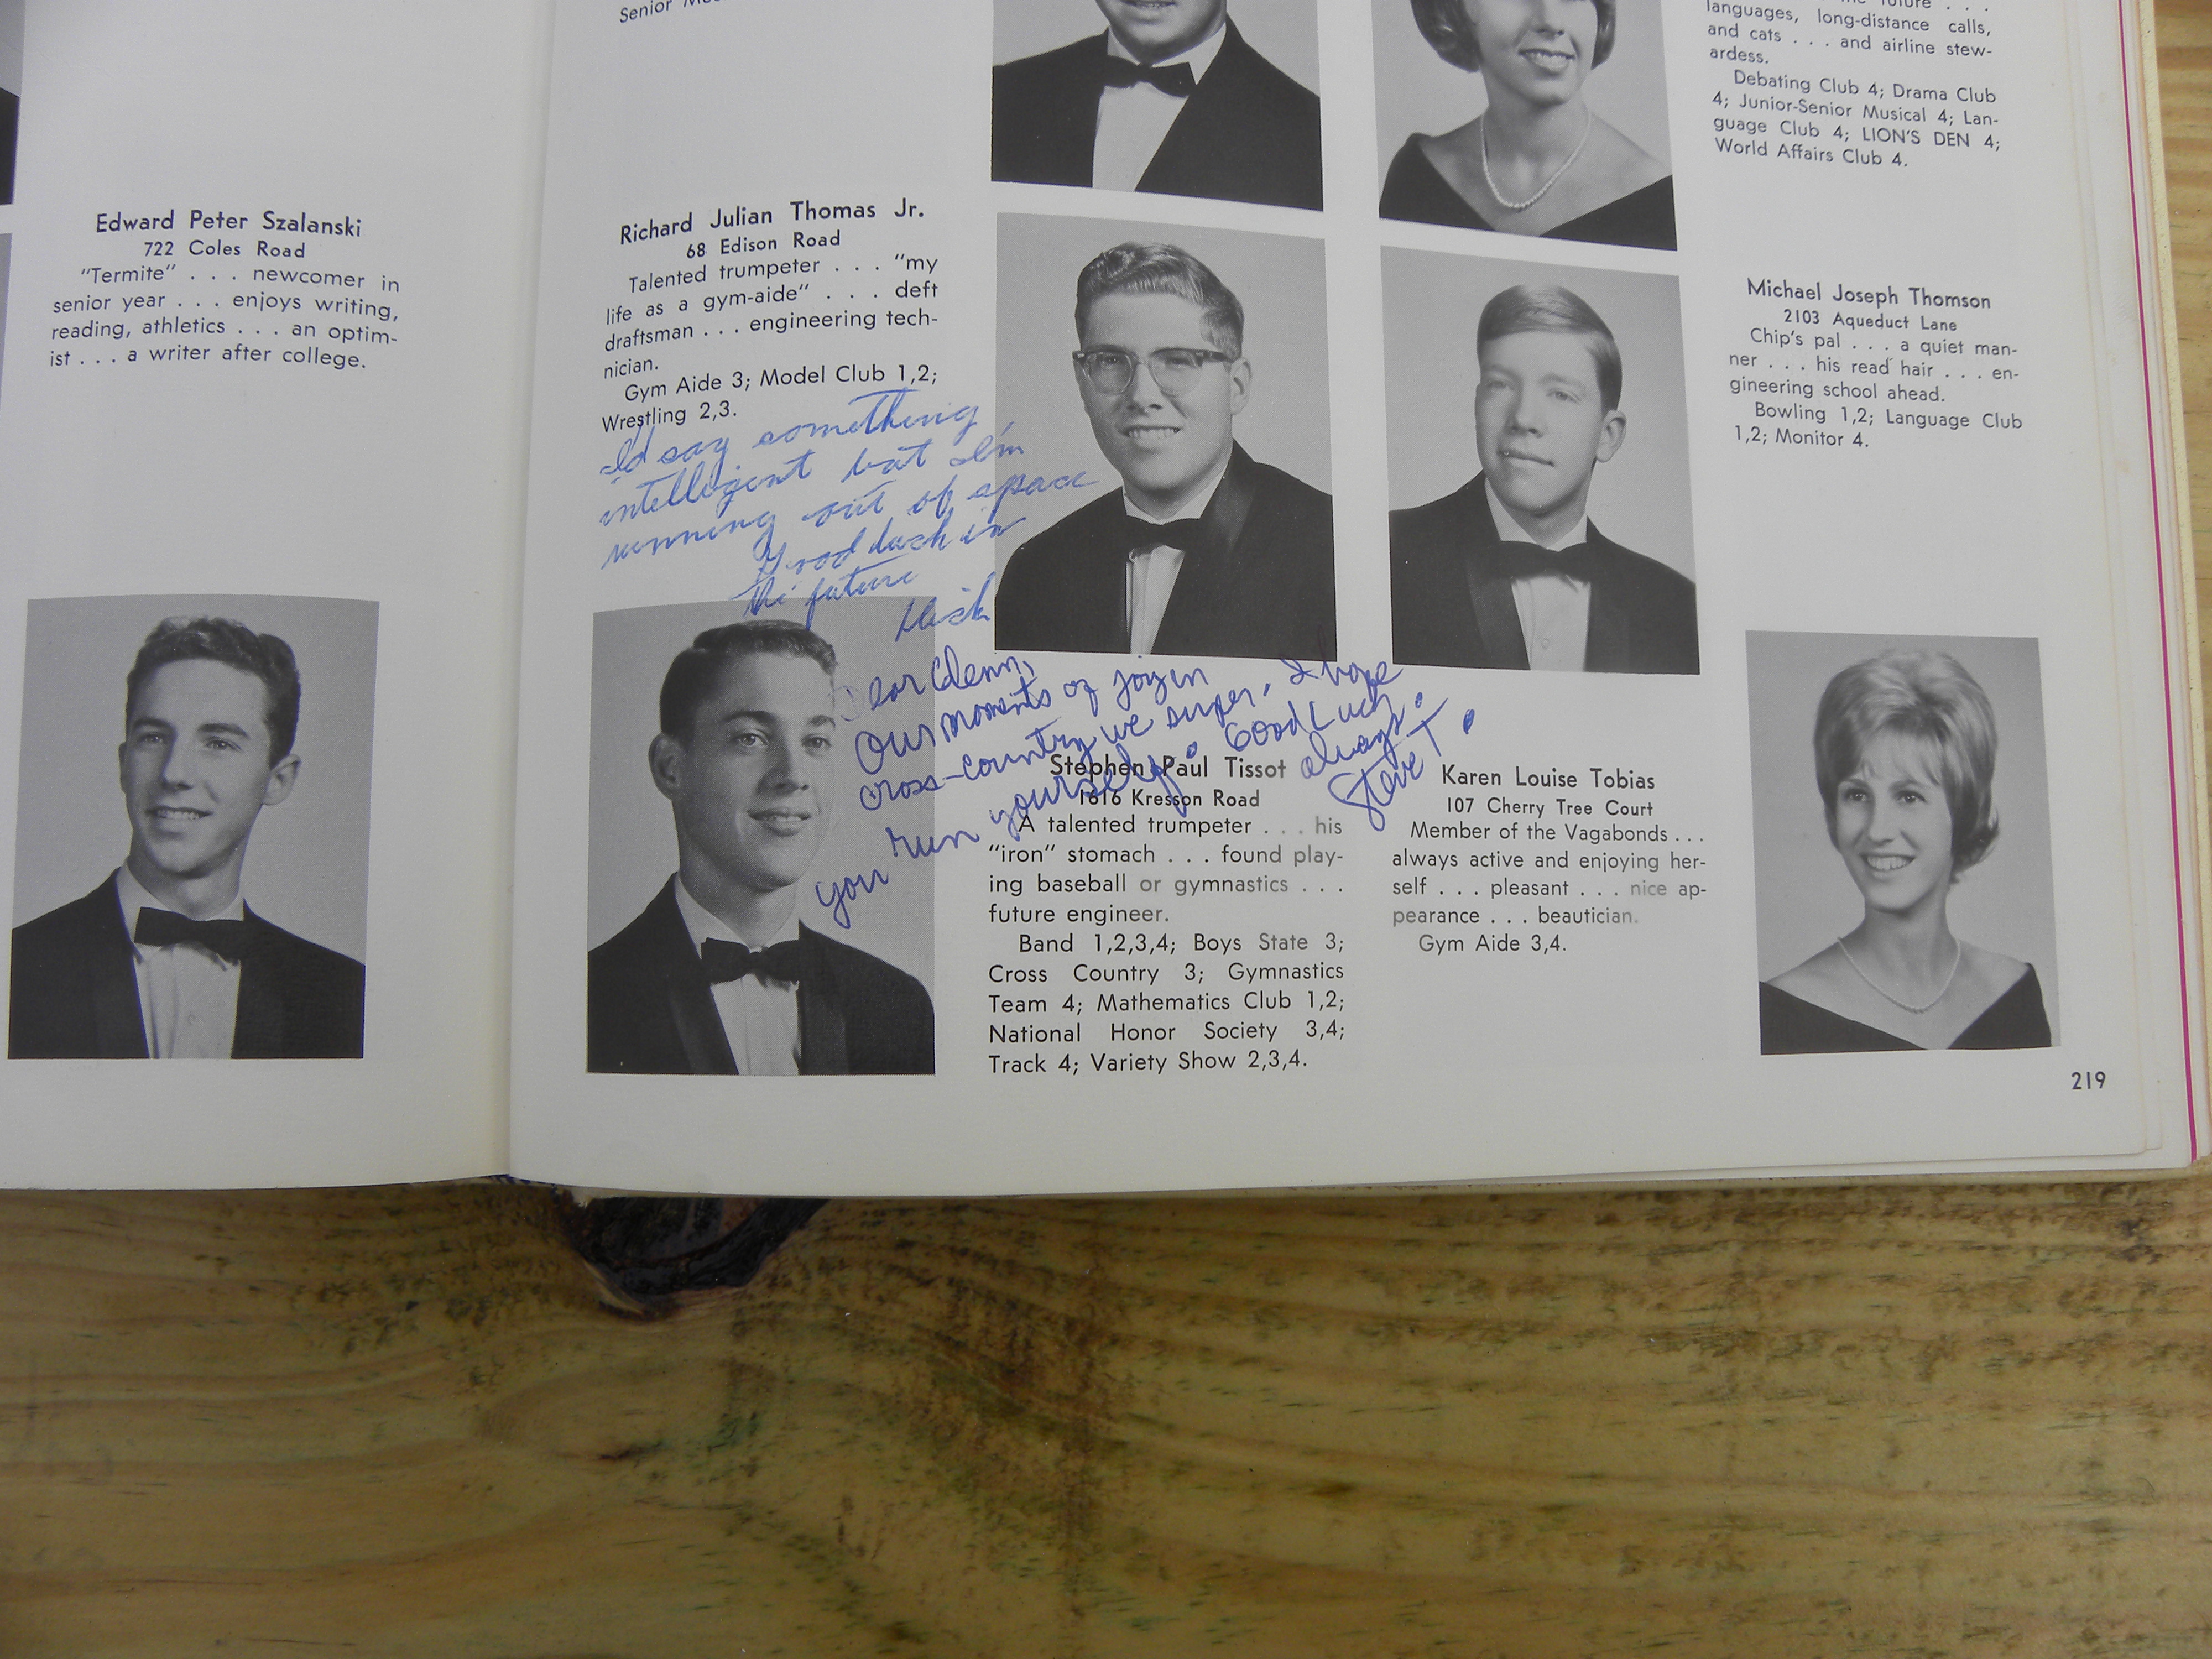 Senior
Edward Peter Szalanski
722 Coles Road
"Termite" . . . newcomer in
senior year . . . enjoys writing,
reading, athletics . . . an optim-
ist . . . a writer after college.
Richard Julian Thomas Jr.
68 Edison Road
Talented trumpeter . . . "my
life as a gym-aide" . . . deft
draftsman . . . engineering tech-
nician.
Gym Aide 3; Model Club 1,2;
Wrestling 2,3.
I'd say something
intelligent but I'm
running out of space
Good luck in
the future
Rich
Dear Glenn,
Our moments of joy in
cross-country we super. I hope
you run yourself. Good Luck
always.
Steve T.
Stephen Paul Tissot
1616 Kresson Road
A talented trumpeter . . . his
"iron" stomach . . . found play-
ing baseball or gymnastics . . .
future engineer.
Band 1,2,3,4; Boys State 3;
Cross Country 3; Gymnastics
Team 4; Mathematics Club 1,2;
National Honor Society 3,4;
Track 4; Variety Show 2,3,4.
Karen Louise Tobias
107 Cherry Tree Court
Member of the Vagabonds . . .
always active and enjoying her-
self . . . pleasant . . . nice ap-
pearance . . . beautician.
Gym Aide 3,4.
future . . .
languages, long-distance calls,
and cats . . . and airline stew-
ardess.
Debating Club 4; Drama Club
4; Junior-Senior Musical 4; Lan-
guage Club 4; LION'S DEN 4;
World Affairs Club 4.
Michael Joseph Thomson
2103 Aqueduct Lane
Chip's pal . . . a quiet man-
ner . . . his read hair . . . en-
gineering school ahead.
Bowling 1,2; Language Club
1,2; Monitor 4.
219